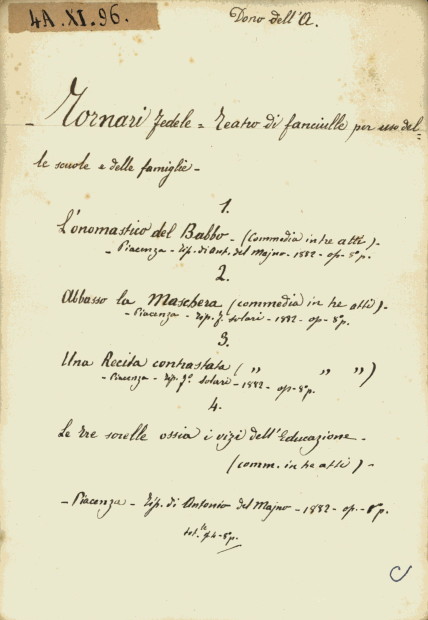 4A. XI. 96.
Dono dell'A.
- Tornari Fedele = Teatro di fanciulle per uso del=
le scuole e delle famiglie -
1.
L'onomastico del Babbo - (Commedia in tre atti) -
- Piacenza - Tip. di Ant. del Majno - 1882 - op - 8º p.
2.
Abbasso la Maschera (commedia in tre atti) -
- Piacenza - Tip. f. Solari - 1882 - op - 8º p.
3.
Una Recita contrastata ( " " " )
- Piacenza - Tip. fº Solari - 1882 - op - 8º p.
4.
Le tre sorelle ossia i vizi dell'Educazione -
(comm. in tre atti) -
- Piacenza - Tip. di Antonio del Majno - 1882 - op - 8º p.